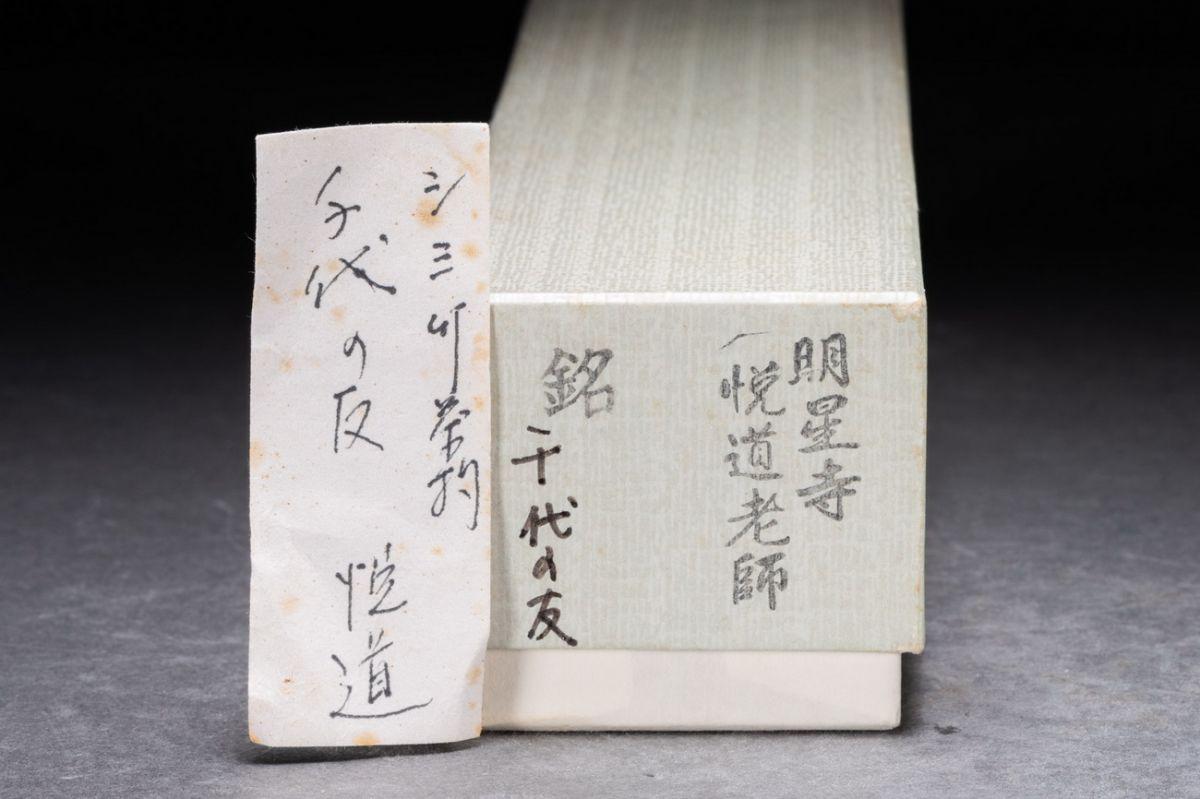 明星寺
悦道老師
銘 千代の友
シミ竹茶杓
千代の友 悦道